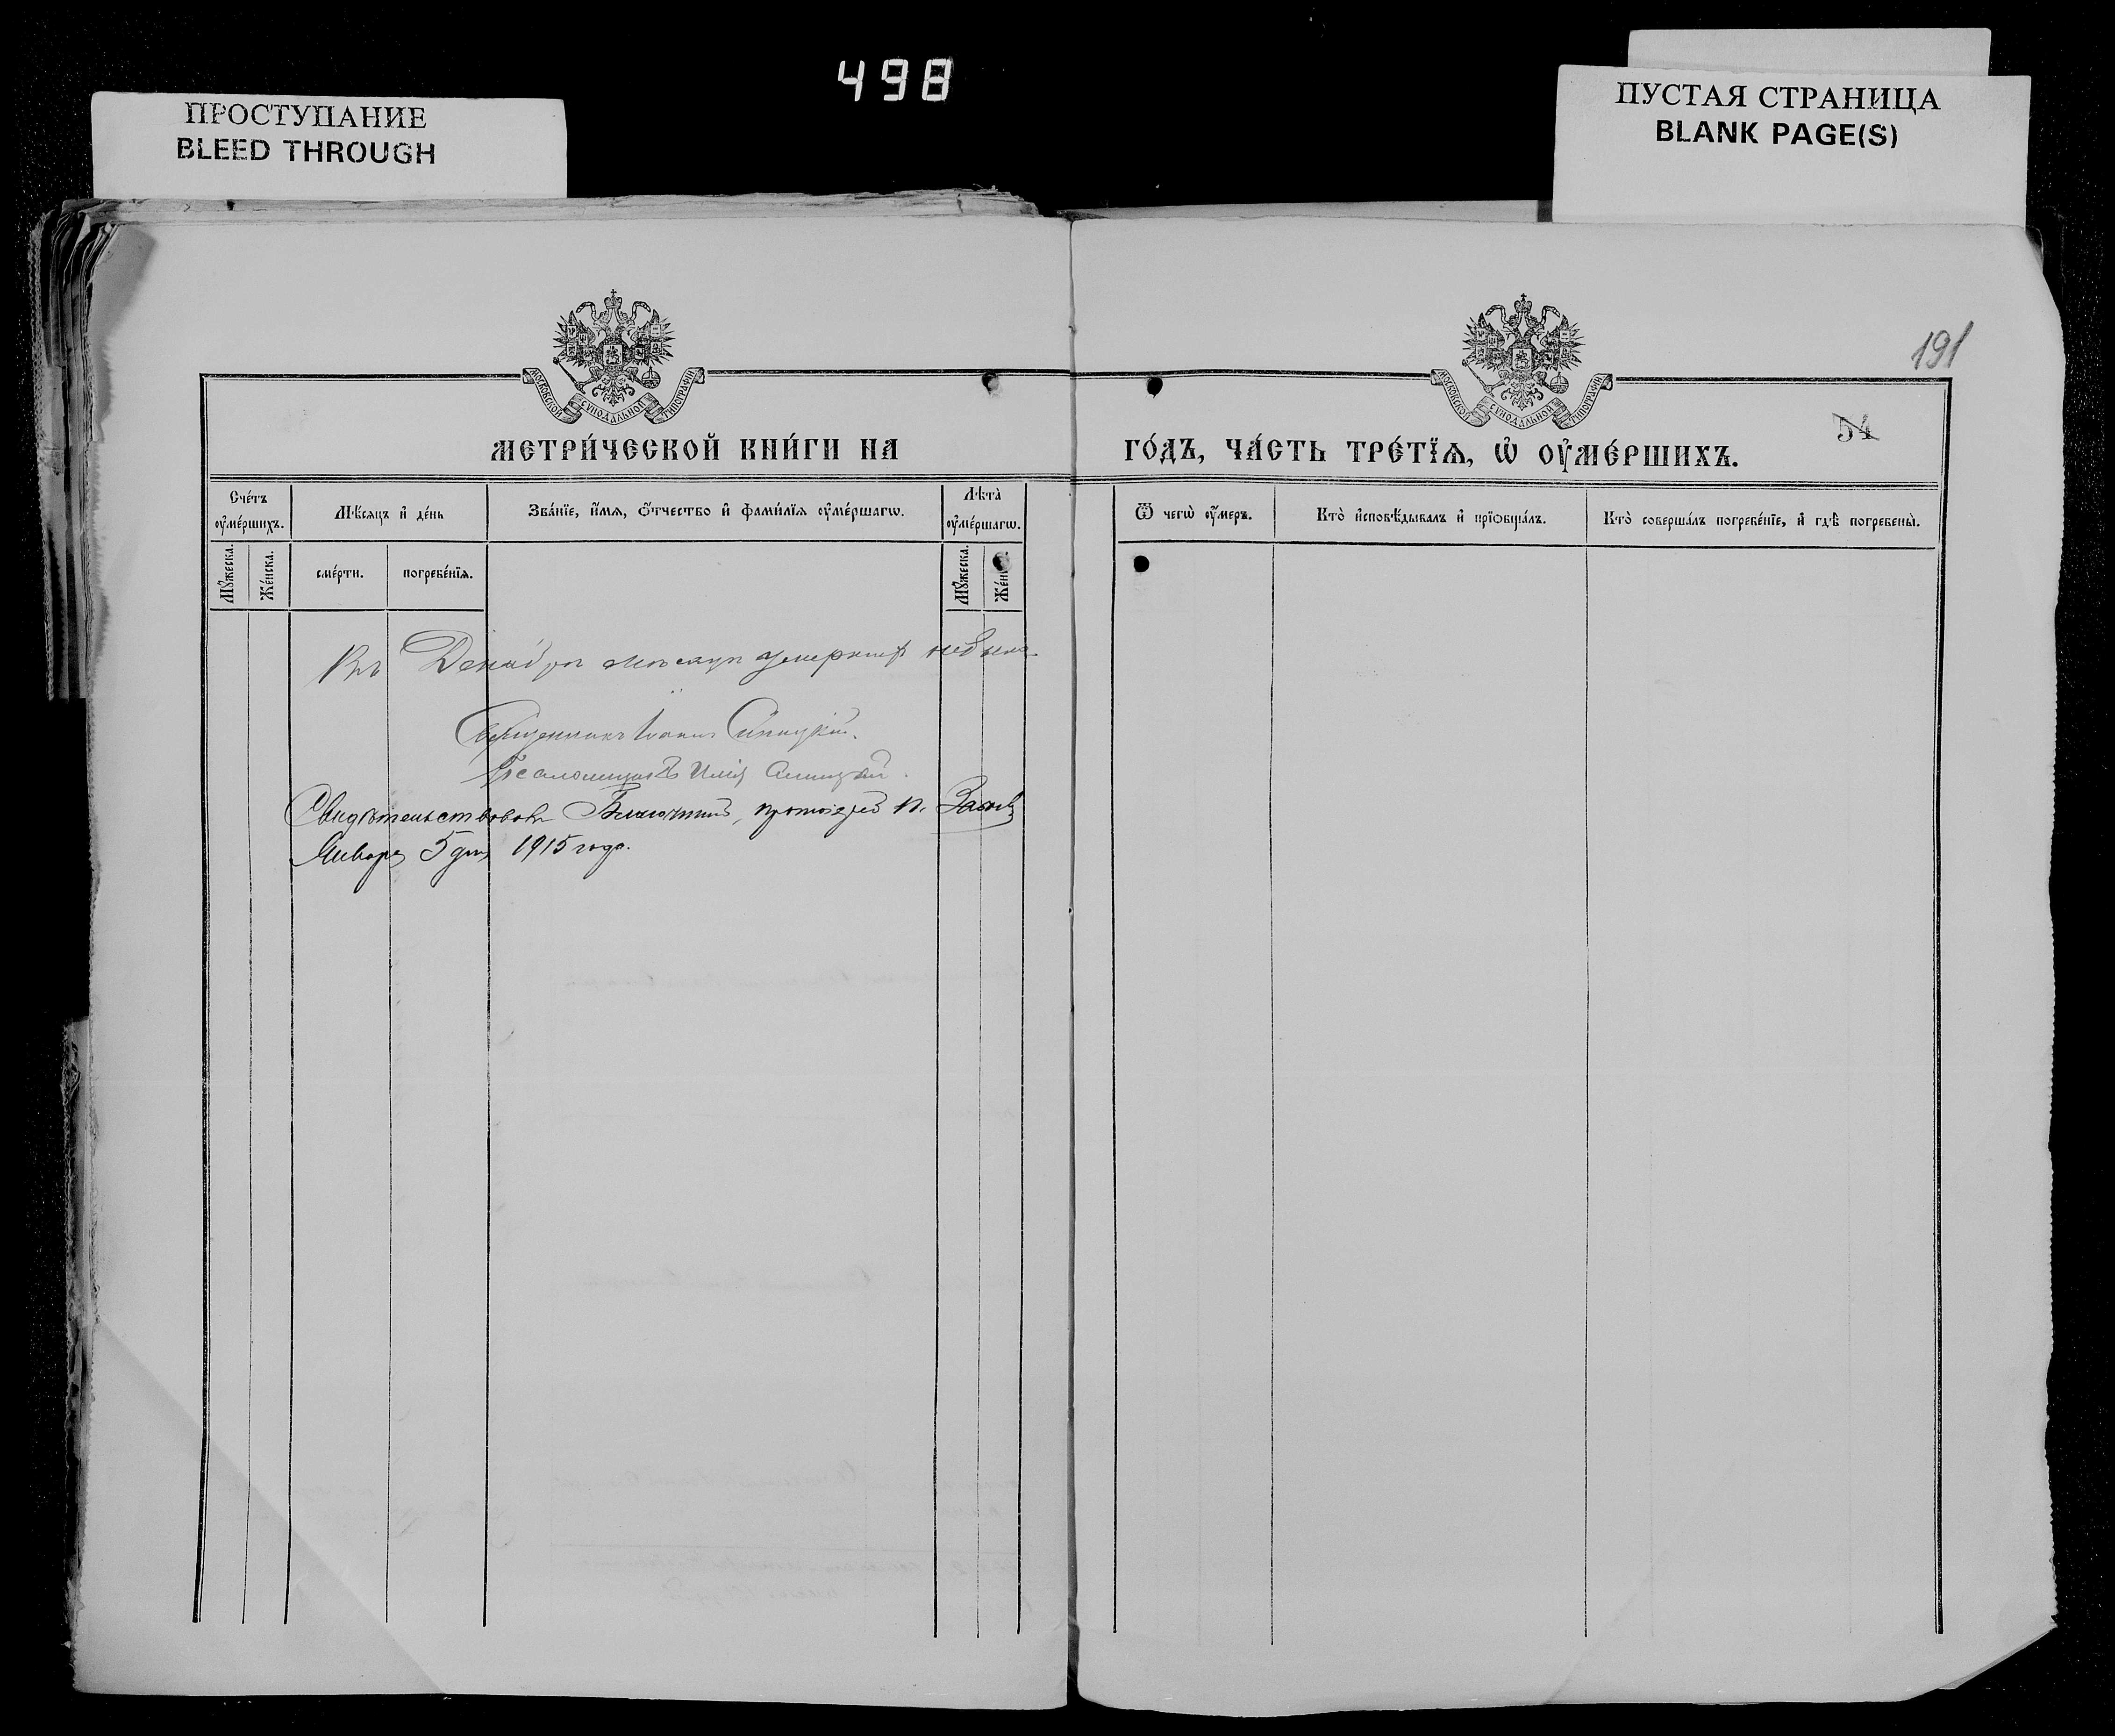 498
ПРОСТУПАНИЕ
BLEED THROUGH
ПУСТАЯ СТРАНИЦА
BLANK PAGE(S)
191
МОСКОВСКОЙ СѴНОДАЛЬНОЙ ТИПОГРАФІИ
МОСКОВСКОЙ СѴНОДАЛЬНОЙ ТИПОГРАФІИ
54
МЕТРИ́ЧЕСКОЙ КНИ́ГИ НА
ГО́ДЪ, ЧА́СТЬ ТРЕ́ТЇѦ, Ѡ҆ ОУ҆МЕ́РШИХЪ.
Сче́тъ оу҆ме́ршихъ.
Мѣ́сѧцъ и҆ де́нь
Зва́нїе, и҆́мѧ, ѻ҆́тчество и҆ фами́лїѧ оу҆ме́ршагѡ.
Лѣта̀ оу҆ме́ршагѡ.
Ѿ чегѡ̀ оу҆́меръ.
Кто̀ и҆сповѣ́дывалъ и҆ прїѻбща́лъ.
Кто̀ соверша́лъ погребе́нїе, и҆ гдѣ̀ погребены̀.
Мꙋ́жеска.
Же́нска.
сме́рти.
погребе́нїѧ.
Мꙋ́жеска.
Въ Декабрѣ мѣсяцѣ умершихъ не было
Священникъ Іоаннъ
Псаломщикъ
Свидѣтельствовалъ Благочинный, протоіерей П.
Января 5 дня 1915 года.